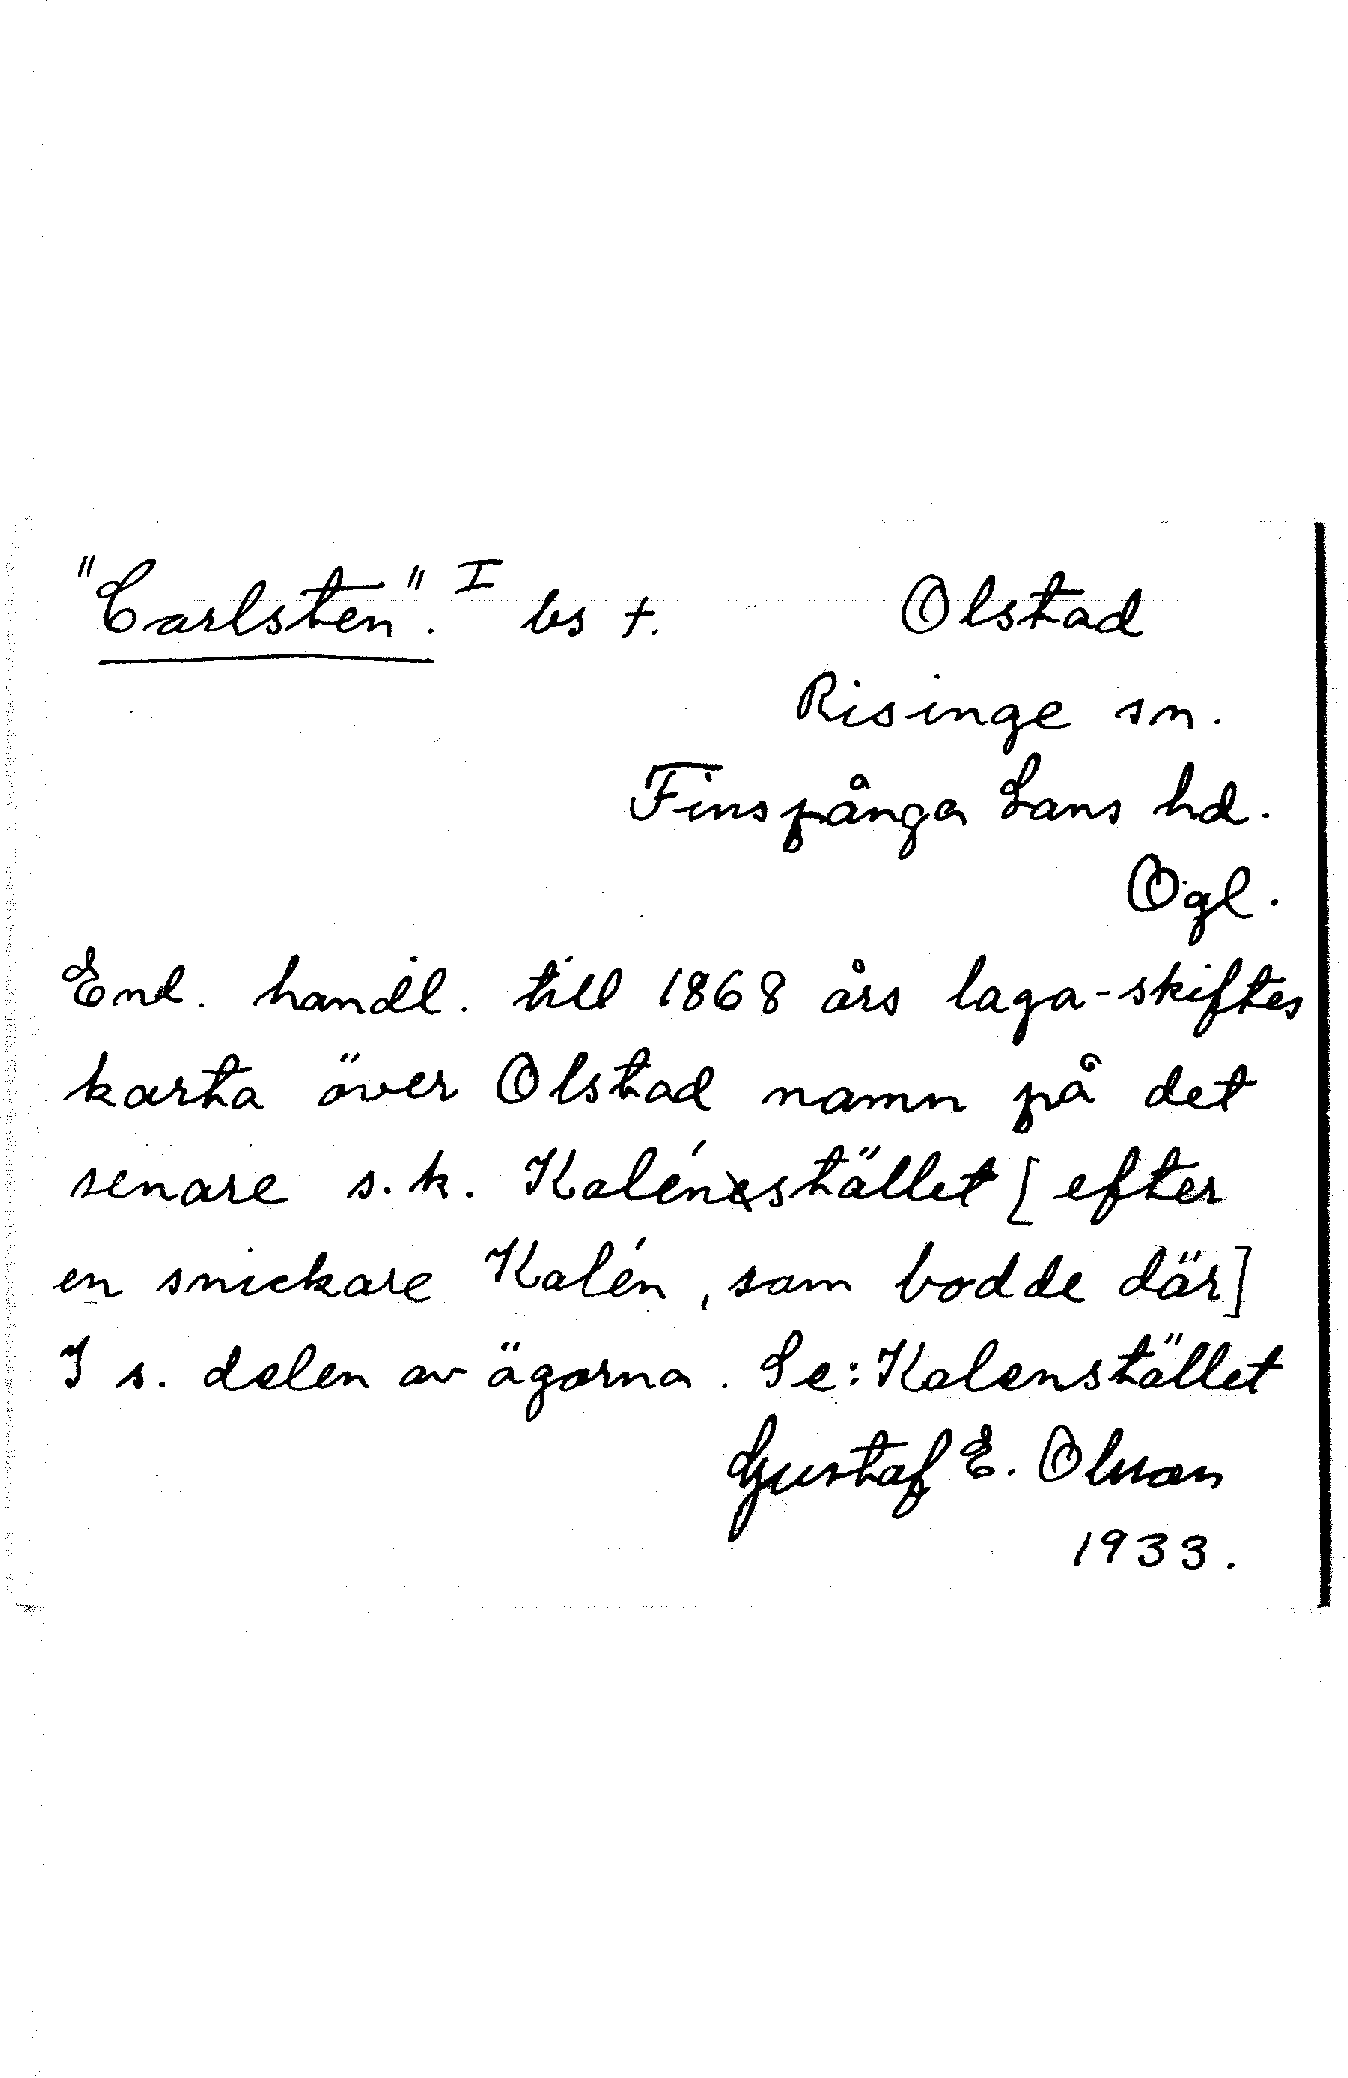 "Carlsten". I bs †. Olstad
Risinge sn.
Finspånga Läns hd.
Ögl.
Enl. handl. till 1868 års laga-skiftes
karta över Olstad namn på det
senare s.k. Kalénstället [efter
en snickare Kalén, som bodde där]
I s. delen av ägorna. Se: Kalenstället
Gustaf E. Olsson
1933.